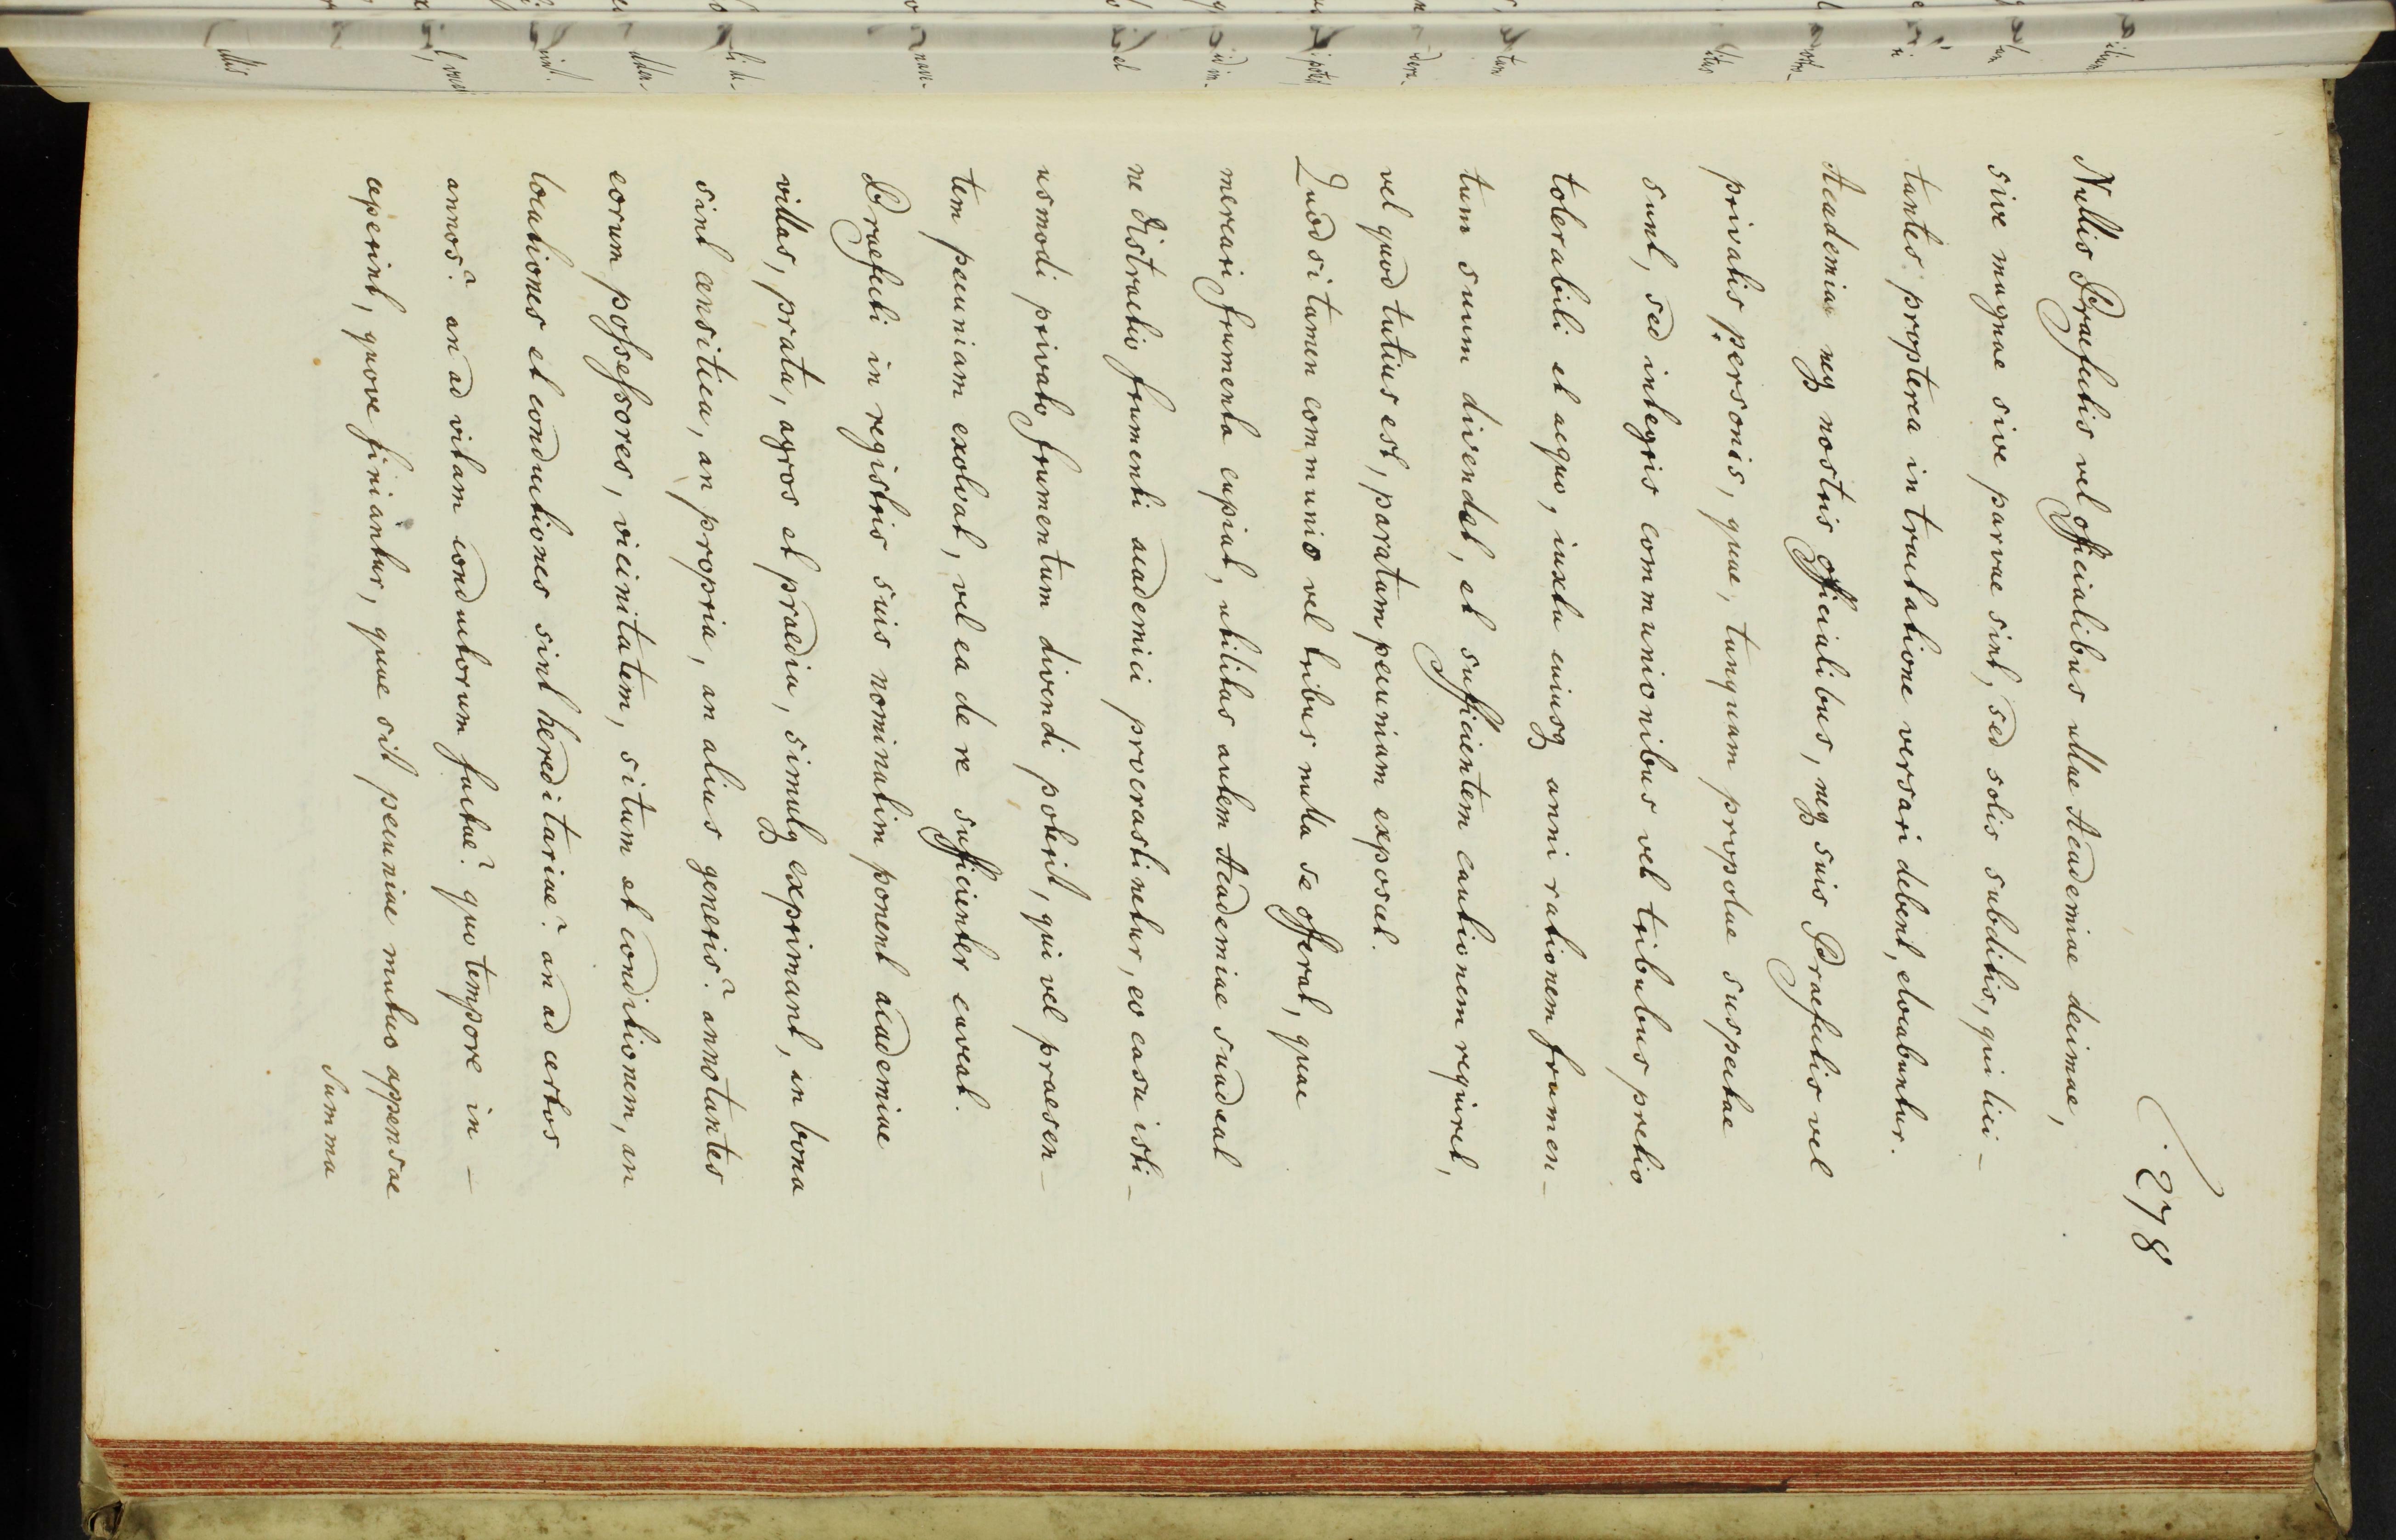 278
Nullis Praefectis vel officialibus ullae Academiae decimae,
sive magnae sive parvae sint, sed solis subditis, qui lici-
tantes propterea in tractatione versari debent, elocabuntur.
Academia neq nostris officialibus, neq suis Praefectis vel
privatis personis, quae, tanquam propolae suspectae
sunt, sed integris communionibus vel tribubus pretio
tolerabili et aequo, iuxta cuiusq anni rationem frumen-
tum suum divendet, et sufficientem cautionem requiret,
vel quod tutius est, paratam pecuniam exposcet.
Quod si tamen communio vel tribus nulla se offerat, quae
mercari frumenta cupiat, utilitas autem Academiae suadeat
ne distractio frumenti academici procrastinetur, eo casu isti-
usmodi privato frumentum divendi poterit, qui vel praesen-
tem pecuniam exolvat, vel ea de re sufficienter caveat.
Praefecti in registris suis nominatim ponent academiae
villas, prata, agros et praedia, simulq exprimant, in bona
sint censitica, an propria, an alius generis? annotantes
eorum possessores, vicinitatem, situm et conditionem, an
locationes et conductiones sint hereditariae? an ad certos
annos? an ad vitam conductorum factae? quo tempore in-
ceperint, quove finiantur, quae sit pecuniae mutuo appensae
Summa